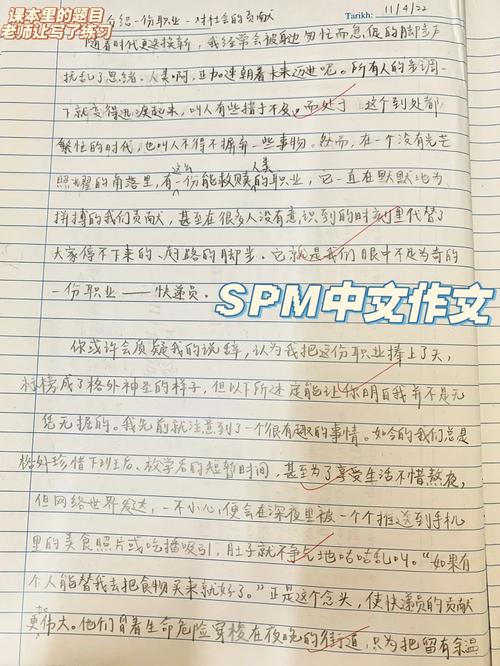 课本里的题目
老师让写了练习
介绍一份职业 - 对社会的贡献
Tarikh: 11/4/22
随着时代更迭换新，我经常会被身边匆忙而急促的脚步声
扰乱了思绪。人类啊，正加速朝着未来迈进呢。所有人的步调
下就变得迅速起来，叫人有些措手不及。而处于这个到处都
繁忙的时代，也叫人不得不摒弃一些事物。然而，在一个没有光芒
照耀的角落里，有这么一份能救赎人类的职业，它一直在默默地为
拼搏的我们贡献，甚至在很多人没有意识到的时刻里代替了
大家停不下来的、赶路的脚步。它就是我们眼中不足为奇的
一份职业——快递员。
SPM中文作文
你或许会质疑我的说辞，认为我把这份职业捧上了天，
标榜成了格外神圣的样子，但以下所述是能让你明白我并不是无
凭无据的。我先前就注意到了一个很有趣的事情。如今的我们总是
格外珍惜下班后、放学后的短暂时间，甚至为了享受生活不惜熬夜，
但网络世界发达，一不小心，便会在深夜里被一个个推送到手机
里的美食照片或吃播吸引，肚子就不争气地咕咕乱叫。“如果有
个人能替我去把食物买来就好了。”正是这个念头，使快递员的贡献
更伟大。他们冒着生命危险穿梭在夜晚的街道，只为把留有余温